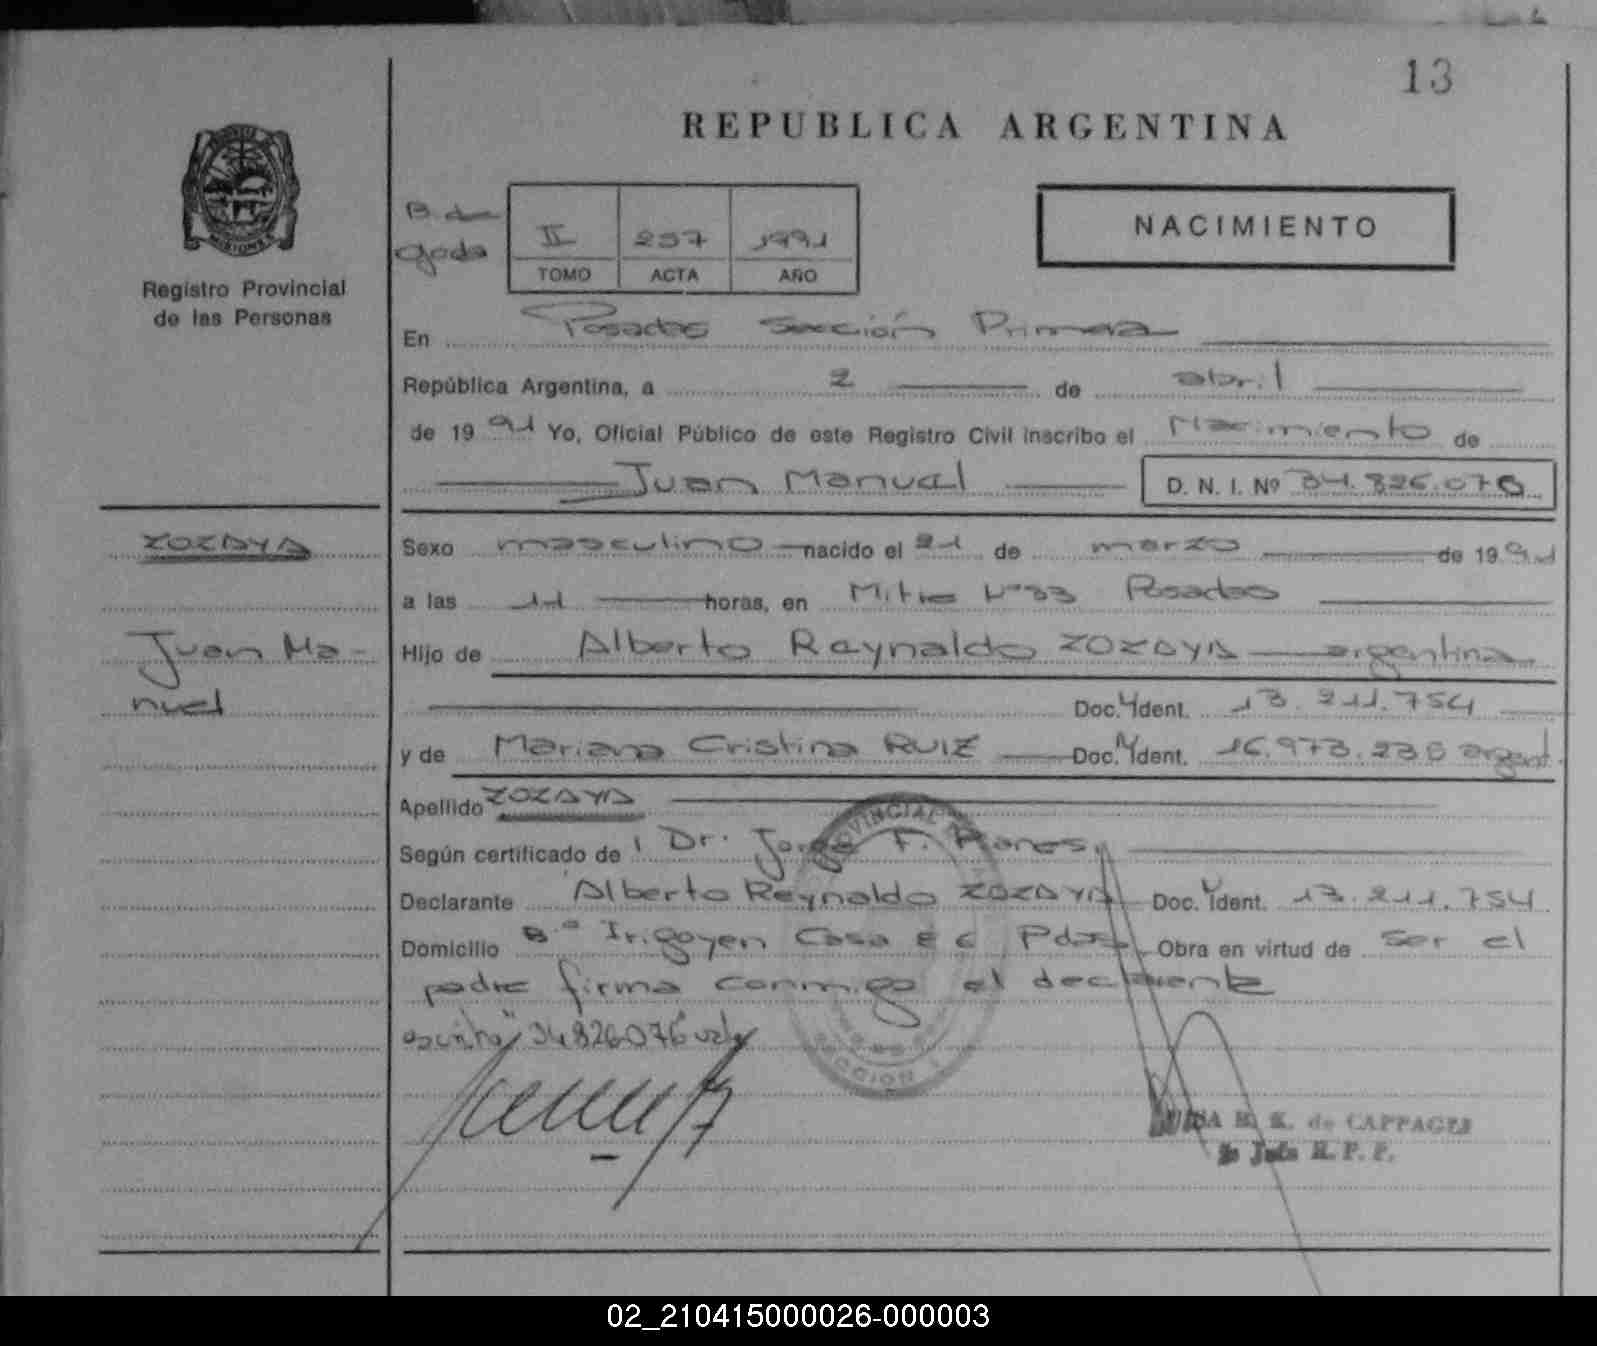 13
REPUBLICA ARGENTINA
NACIMIENTO
II 257 1991
TOMO ACTA AÑO
MISIONES
Registro Provincial
de las Personas
En Posadas Sección Primera
República Argentina, a 2 de abril
de 1991 Yo, Oficial Público de este Registro Civil inscribo el Nacimiento de
Juan Manuel D. N. I. Nº 34.826.076
ZOZAYA
Sexo masculino nacido el 21 de marzo de 1991
a las 11 horas, en Mitre Nº 33 Posadas
Juan Ma-
nuel
Hijo de Alberto Reynaldo ZOZAYA argentina
Doc. Ident. 13.211.754
y de Mariana Cristina RUIZ Doc. Ident. 16.973.236 argent.
Apellido ZOZAYA
Según certificado de Dr. Jorge F.
Declarante Alberto Reynaldo ZOZAYA Doc. Ident. 13.211.754
Domicilio Bº Irigoyen Casa Pdas Obra en virtud de ser el
padre firma conmigo el declarante
34826076 vale
PROVINCIAL
SECCION 1
R. K. de CAPPAGLI
Jefe R. P. P.
02_210415000026-000003